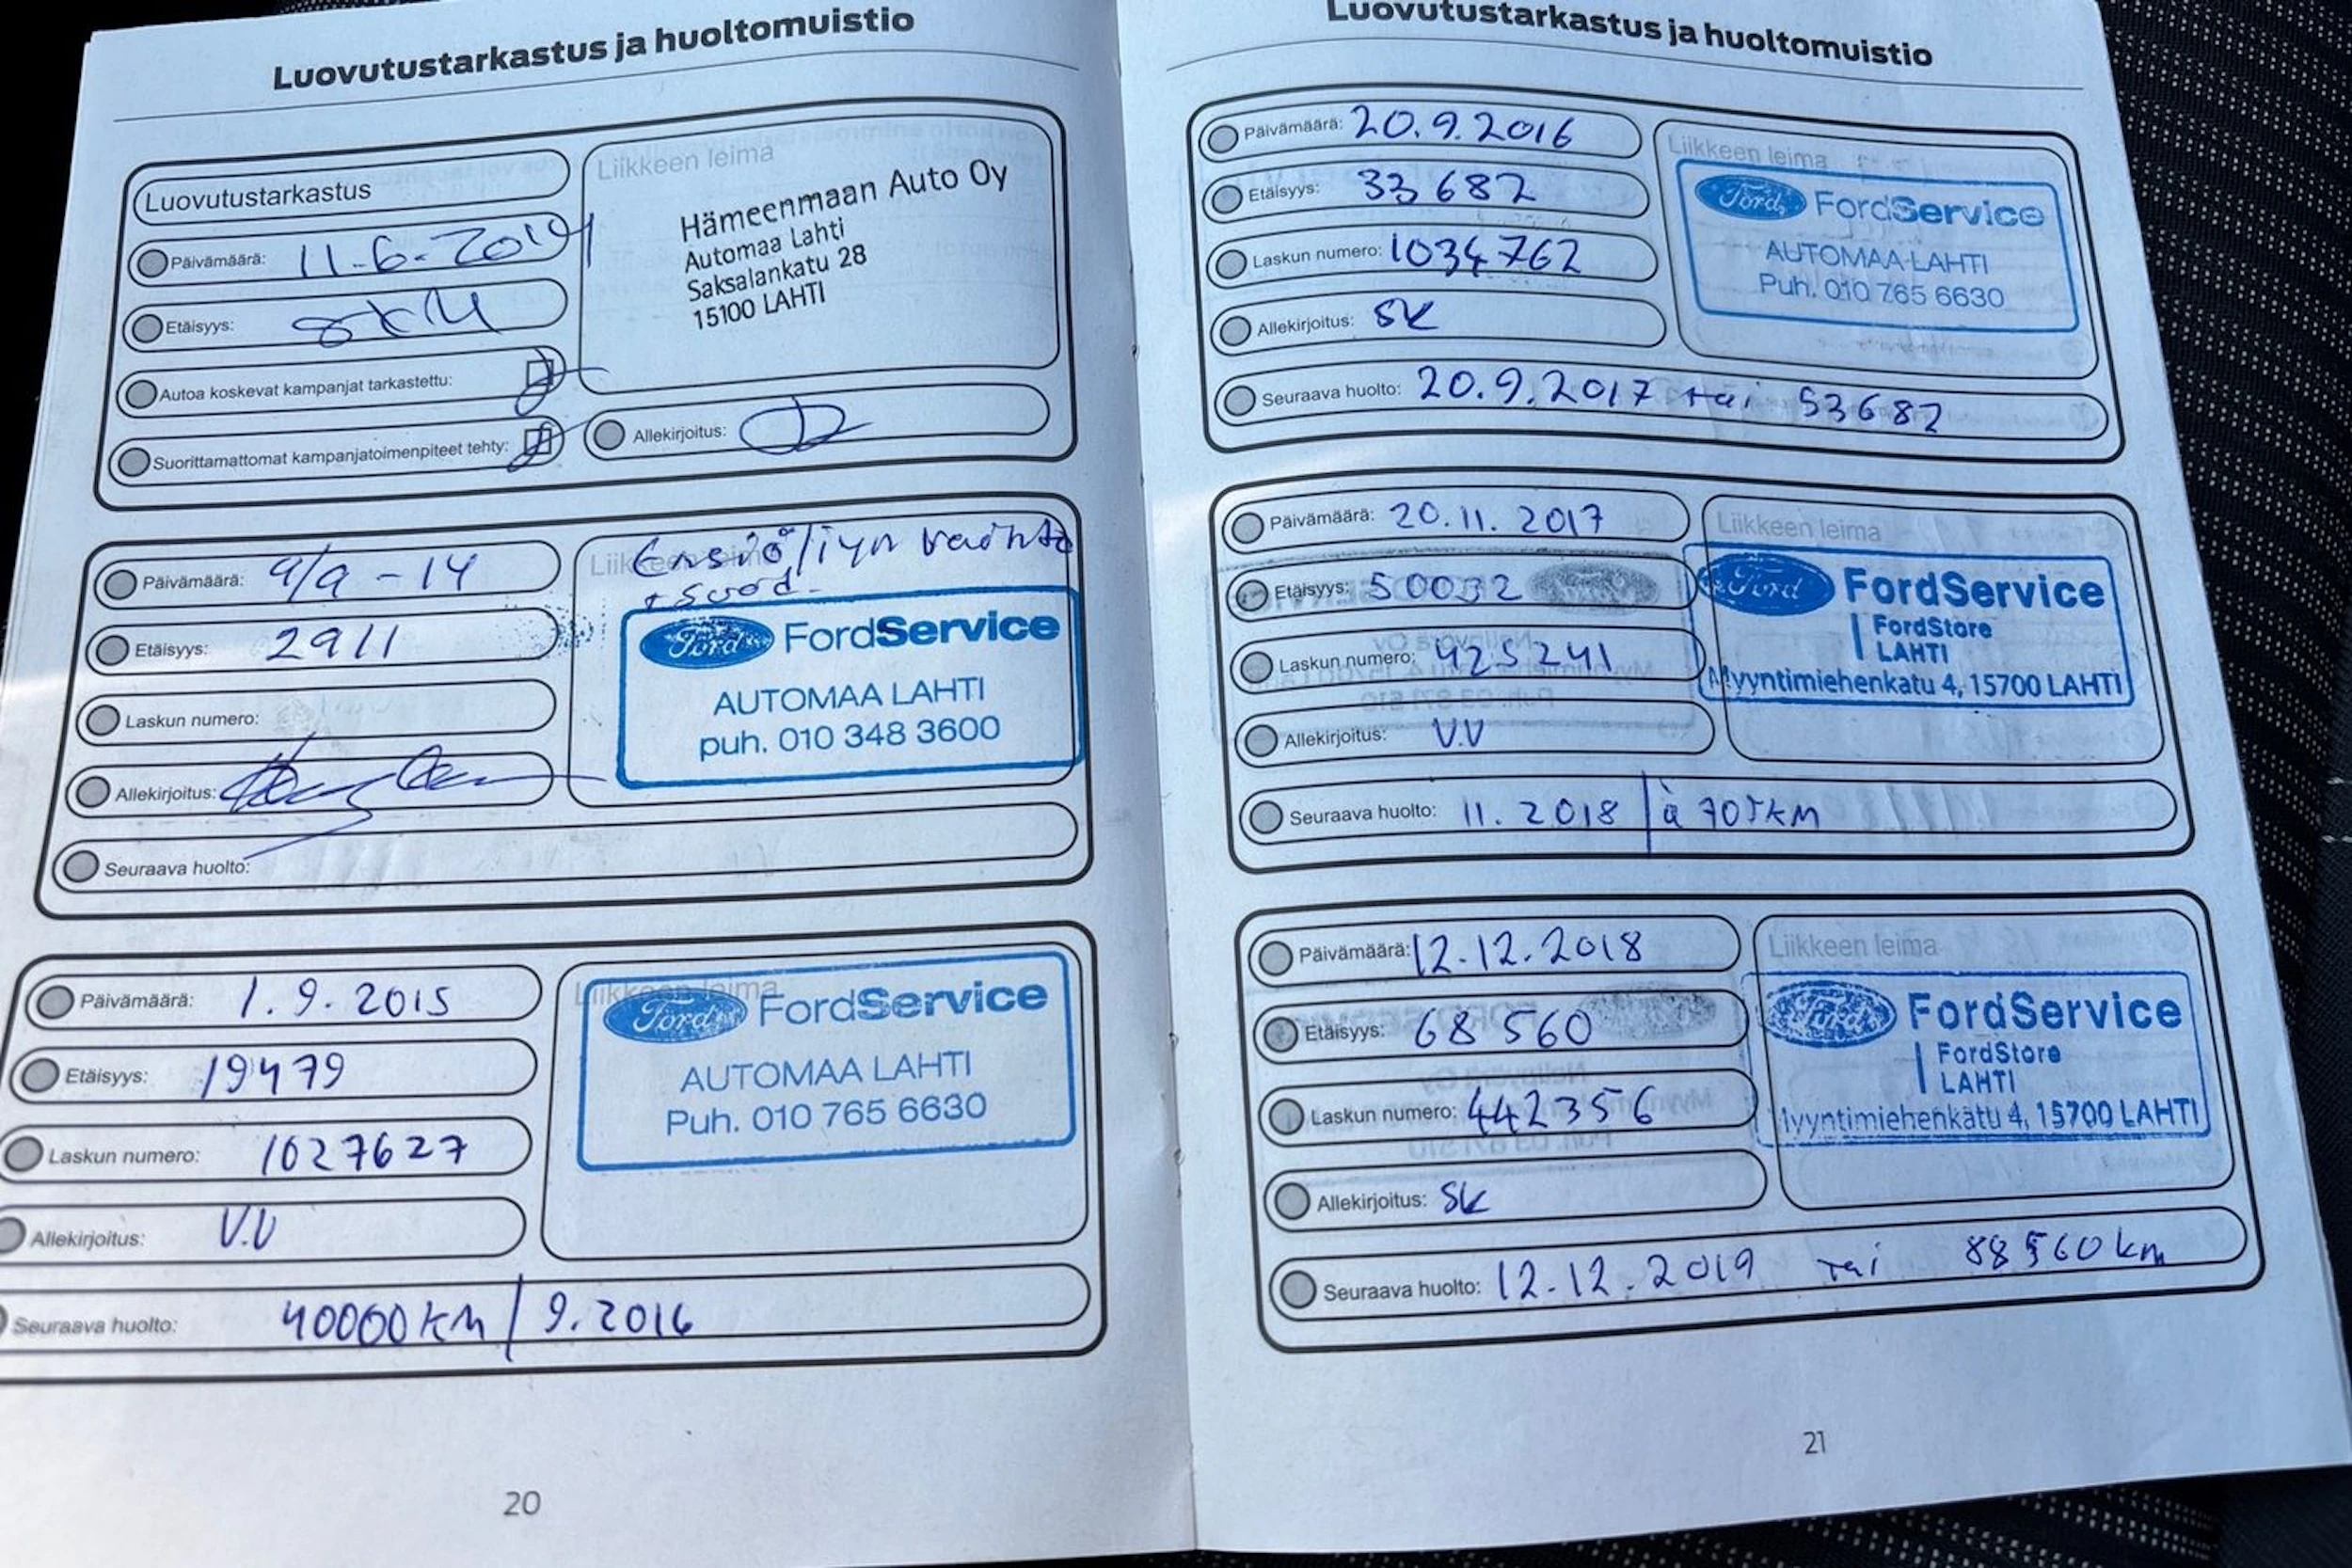 Luovutustarkastus ja huoltomuistio
Luovutustarkastus
Päivämäärä: 11.6.2014
Etäisyys: 8KM
Autoa koskevat kampanjat tarkastettu:
Suorittamattomat kampanjatoimenpiteet tehty:
Liikkeen leima
Hämeenmaan Auto Oy
Automaa Lahti
Saksalankatu 28
15100 LAHTI
Allekirjoitus:
Päivämäärä: 9/9 - 14
Etäisyys: 2911
Laskun numero:
Allekirjoitus:
Seuraava huolto:
Liikkeen leima
Ensiöljyn vaihto
+ suod.
Ford FordService
AUTOMAA LAHTI
puh. 010 348 3600
Päivämäärä: 1.9.2015
Etäisyys: 19479
Laskun numero: 1027627
Allekirjoitus: V.V
Seuraava huolto: 40000 KM / 9.2016
Liikkeen leima
Ford FordService
AUTOMAA LAHTI
Puh. 010 765 6630
20
Luovutustarkastus ja huoltomuistio
Päivämäärä: 20.9.2016
Etäisyys: 33682
Laskun numero: 1034762
Allekirjoitus: SK
Seuraava huolto: 20.9.2017 tai 53682
Liikkeen leima
Ford FordService
AUTOMAA LAHTI
Puh. 010 765 6630
Päivämäärä: 20.11.2017
Etäisyys: 50032
Laskun numero: 425241
Allekirjoitus: V.V
Seuraava huolto: 11.2018 / à 70TKM
Liikkeen leima
Ford FordService
FordStore
LAHTI
Myyntimiehenkatu 4, 15700 LAHTI
Päivämäärä: 12.12.2018
Etäisyys: 68560
Laskun numero: 442356
Allekirjoitus: SK
Seuraava huolto: 12.12.2019 tai 88560 km
Liikkeen leima
Ford FordService
FordStore
LAHTI
Myyntimiehenkatu 4, 15700 LAHTI
21